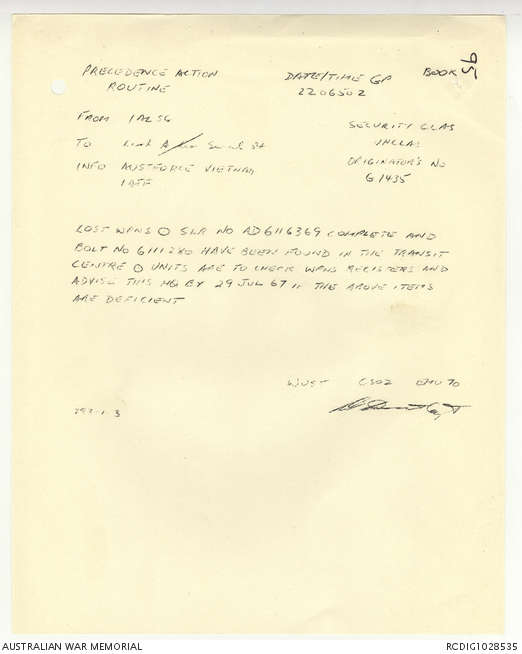 PRECEDENCE ACTION
ROUTINE
DATE/TIME GP
220650Z
BOOK
95
FROM 1 ALSG
TO
INFO AUSTFORCE VIETNAM
1 ATF
SECURITY CLAS
UNCLAS
ORIGINATOR'S NO
G1435
LOST WPNS O SLR NO AD6116369 COMPLETE AND
BOLT NO 6111280 HAVE BEEN FOUND IN THE TRANSIT
CENTRE O UNITS ARE TO CHECK WPNS REGISTERS AND
ADVISE THIS HQ BY 29 JUL 67 IF THE ABOVE ITEMS
ARE DEFICIENT
GSO2 EMU 70
AUSTRALIAN WAR MEMORIAL
RCDIG1028535